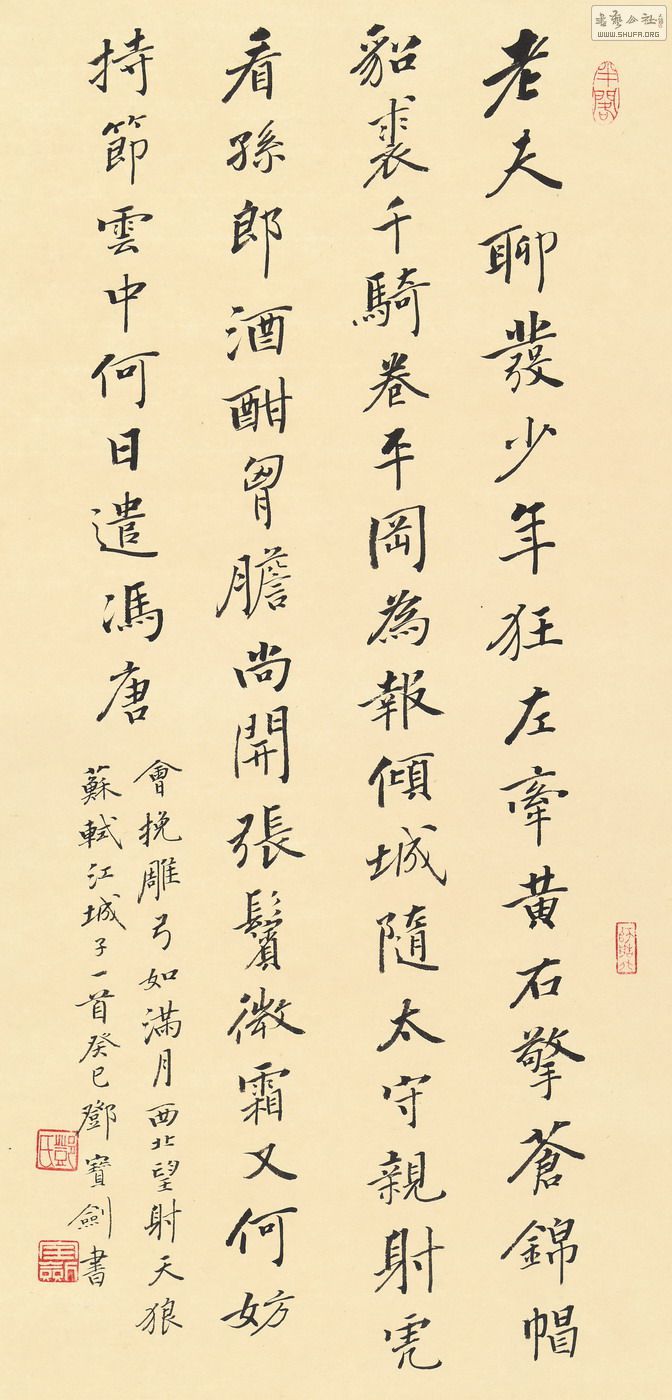 老夫聊發少年狂左牽黄右擎蒼錦帽
貂裘千騎卷平岡為報傾城隨太守親射虎
看孫郎酒酣胷膽尚開張鬢微霜又何妨
持節雲中何日遣馮唐
會挽雕弓如滿月西北望射天狼
蘇軾江城子一首癸巳鄧寶劍書
鄧氏
WWW.SHUFA.ORG